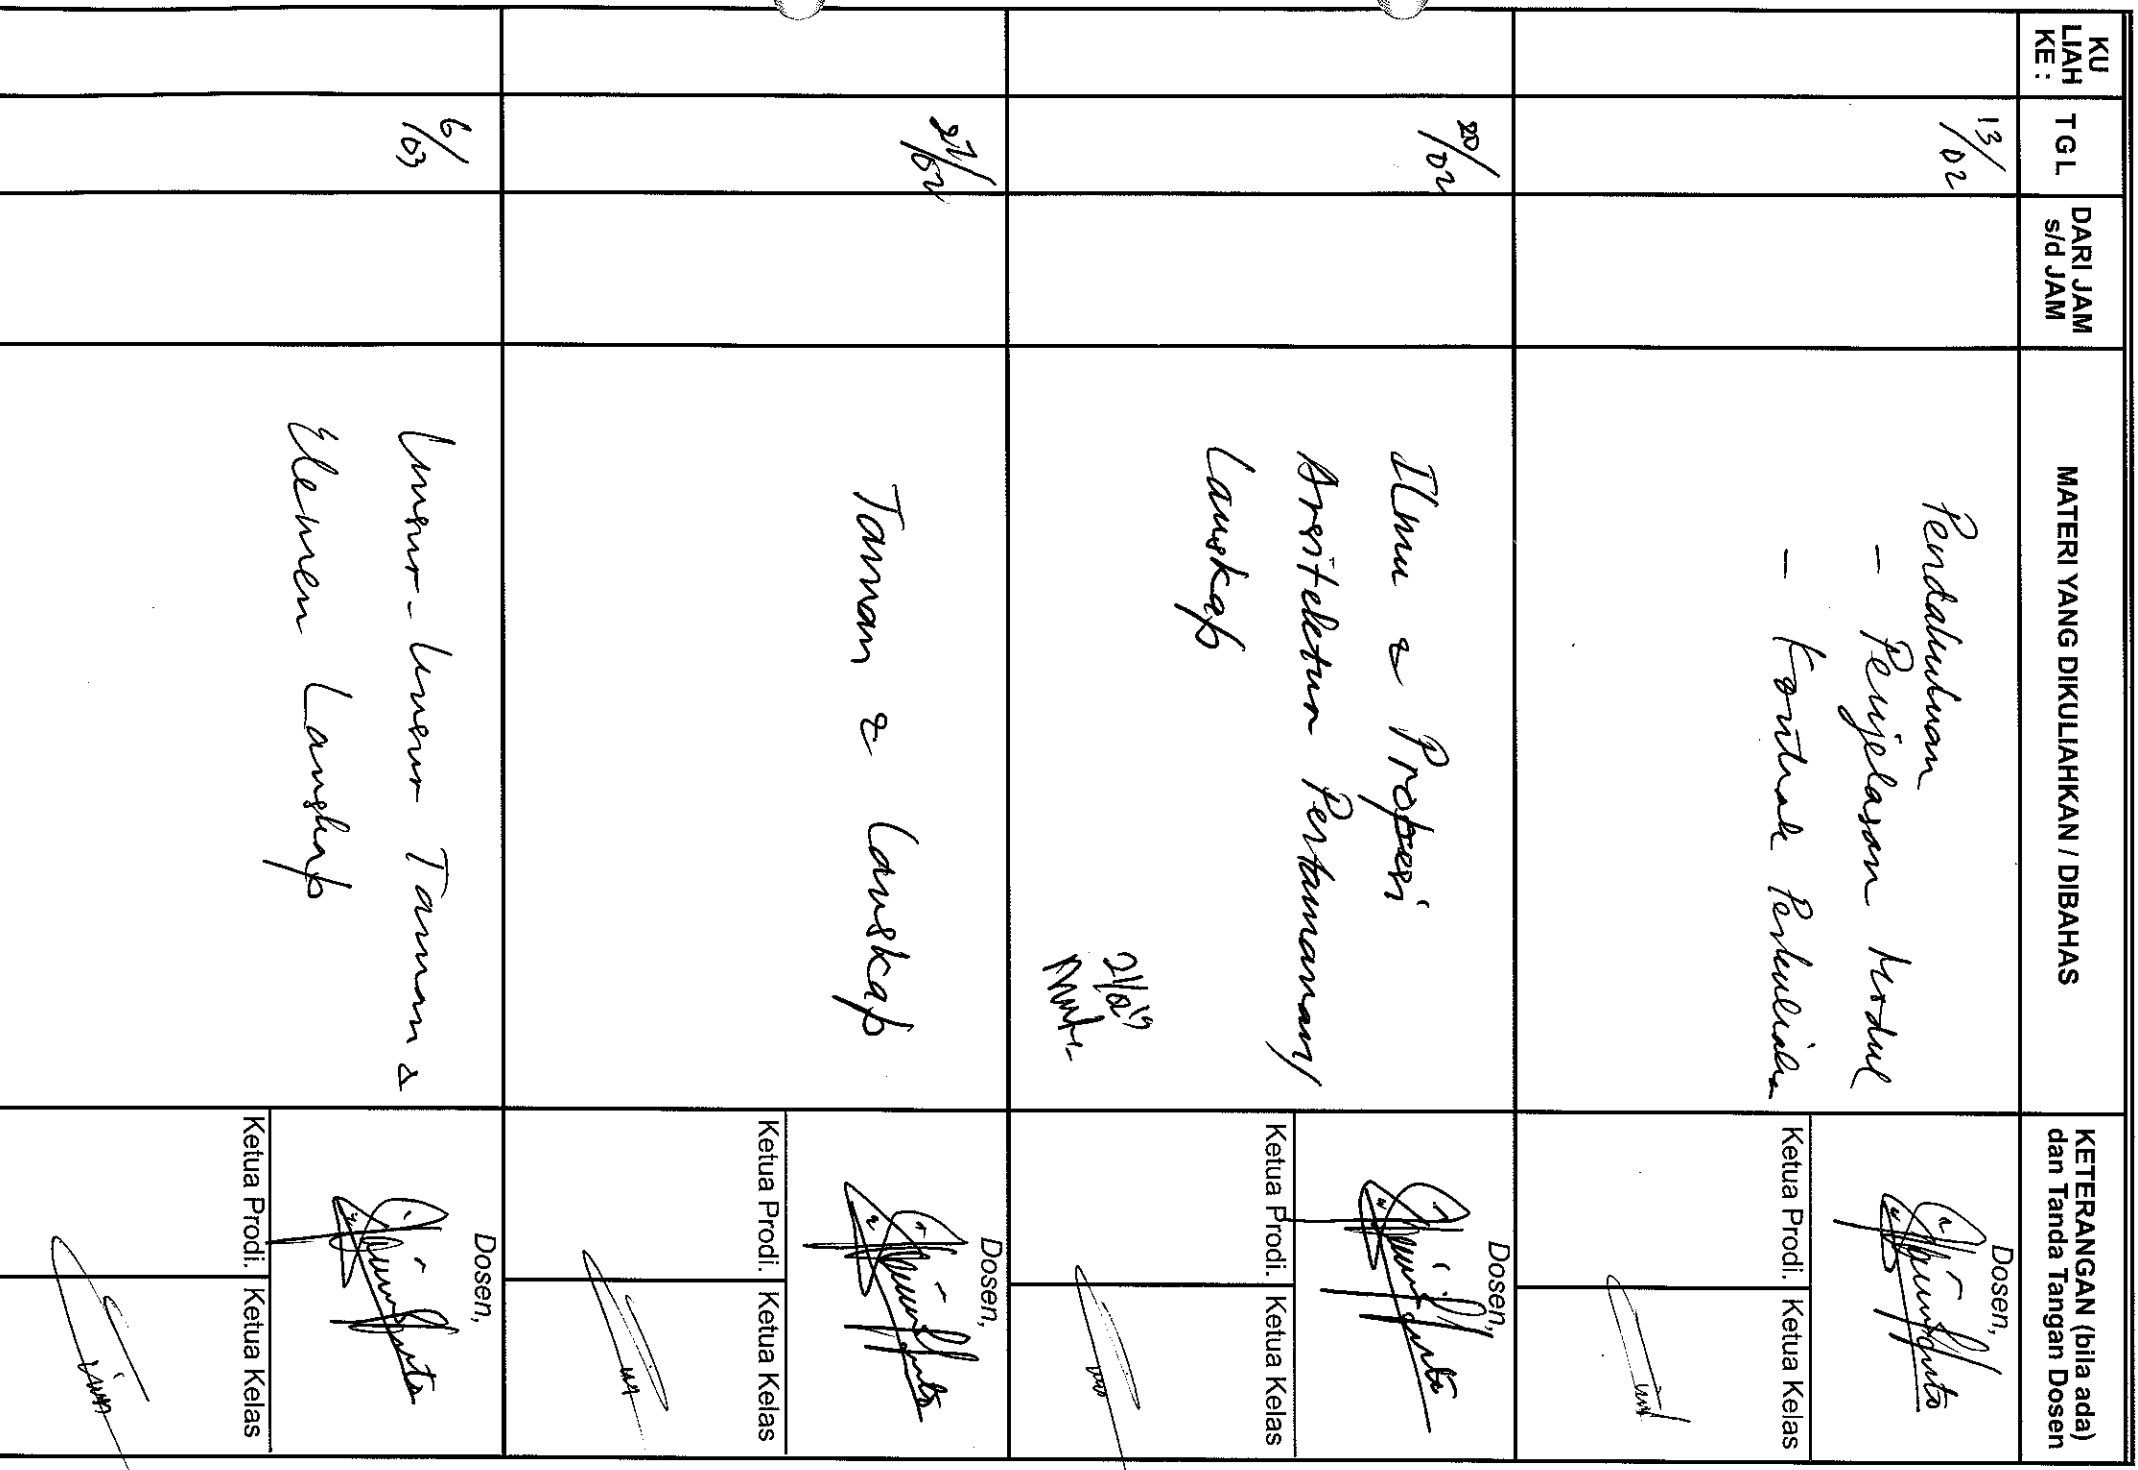 KU
LIAH
KE :
TGL
DARI JAM
s/d JAM
MATERI YANG DIKULIAHKAN / DIBAHAS
KETERANGAN (bila ada)
dan Tanda Tangan Dosen
13/02
Pendahuluan
- Penjelasan Modul
- Kontrak Perkuliahan
Dosen,
Ketua Prodi.
Ketua Kelas
20/02
Ilmu & Propesi
Arsitektur Pertamanan/
Lanskap
Dosen,
Ketua Prodi.
Ketua Kelas
27/02
Taman & Lanskap
Dosen,
Ketua Prodi.
Ketua Kelas
6/03
Unsur-Unsur Taman &
Elemen Lanskap
Dosen,
Ketua Prodi.
Ketua Kelas